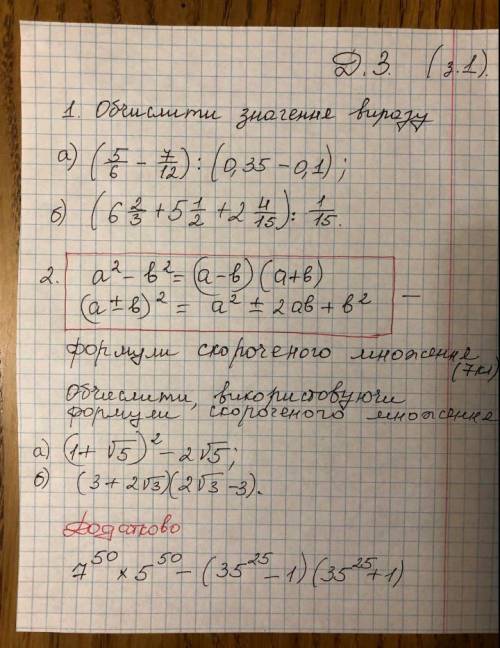 Д.З. (з.1).
1. Обчислити значення виразу
а) (5/6 - 7/12) : (0,35 - 0,1);
б) (6 2/3 + 5 1/2 + 2 4/15) : 1/15.
2. a² - в² = (a - в)(a + в)
(a ± в)² = a² ± 2aв + в² —
формули скороченого множення
(7кл)
Обчислити, використовуючи
формули скороченого множення
а) (1 + √5)² - 2√5;
б) (3 + 2√3)(2√3 - 3).
Додатково
7⁵⁰ × 5⁵⁰ - (35²⁵ - 1)(35²⁵ + 1)